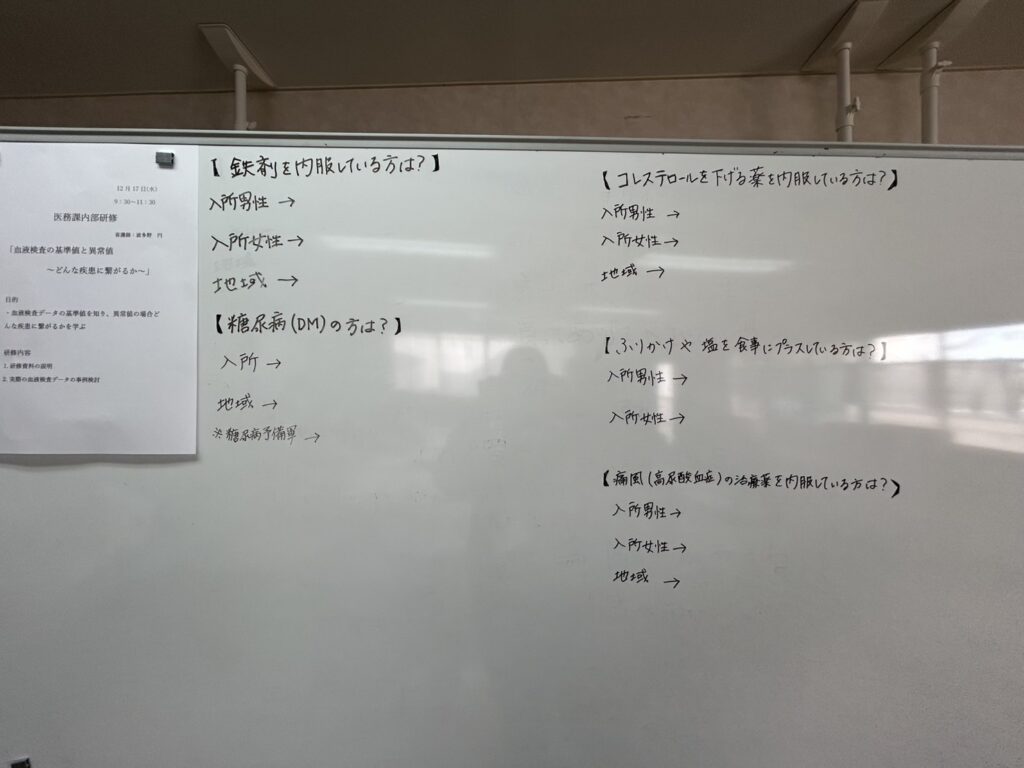 12月17日(水)
9:30~11:30
医務課内部研修
看護師：波多野 円
「血液検査の基準値と異常値
～どんな疾患に繋がるか～」
目的
・血液検査データの基準値を知り、異常値の場合ど
んな疾患に繋がるかを学ぶ
研修内容
1. 研修資料の説明
2. 実際の血液検査データの事例検討
【鉄剤を内服している方は?】
入所男性 →
入所女性 →
地域 →
【糖尿病(DM)の方は?】
入所 →
地域 →
※糖尿病予備軍 →
【コレステロールを下げる薬を内服している方は?】
入所男性 →
入所女性 →
地域 →
【ふりかけや 塩を食事にプラスしている方は?】
入所男性 →
入所女性 →
【痛風(高尿酸血症)の治療薬を内服している方は?】
入所男性 →
入所女性 →
地域 →